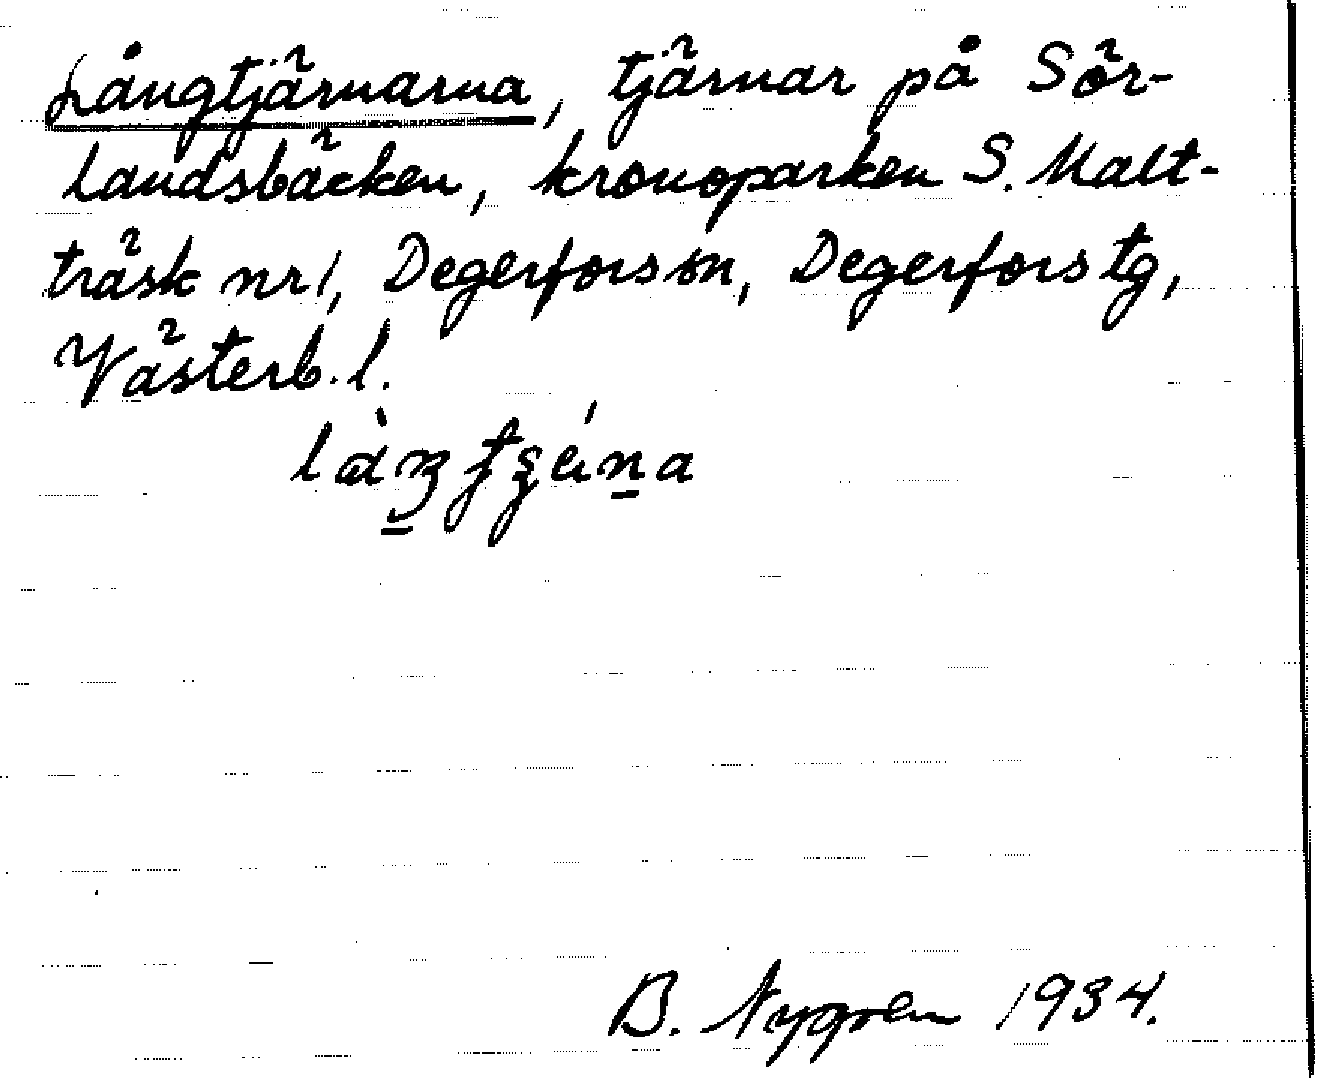 Långtjärnarna, tjärnar på Sör-
landsbäcken, kronoparken S. Malt-
träsk nr 1, Degerfors sn, Degerfors tg,
Västerb. l.
B. Nygren 1934.